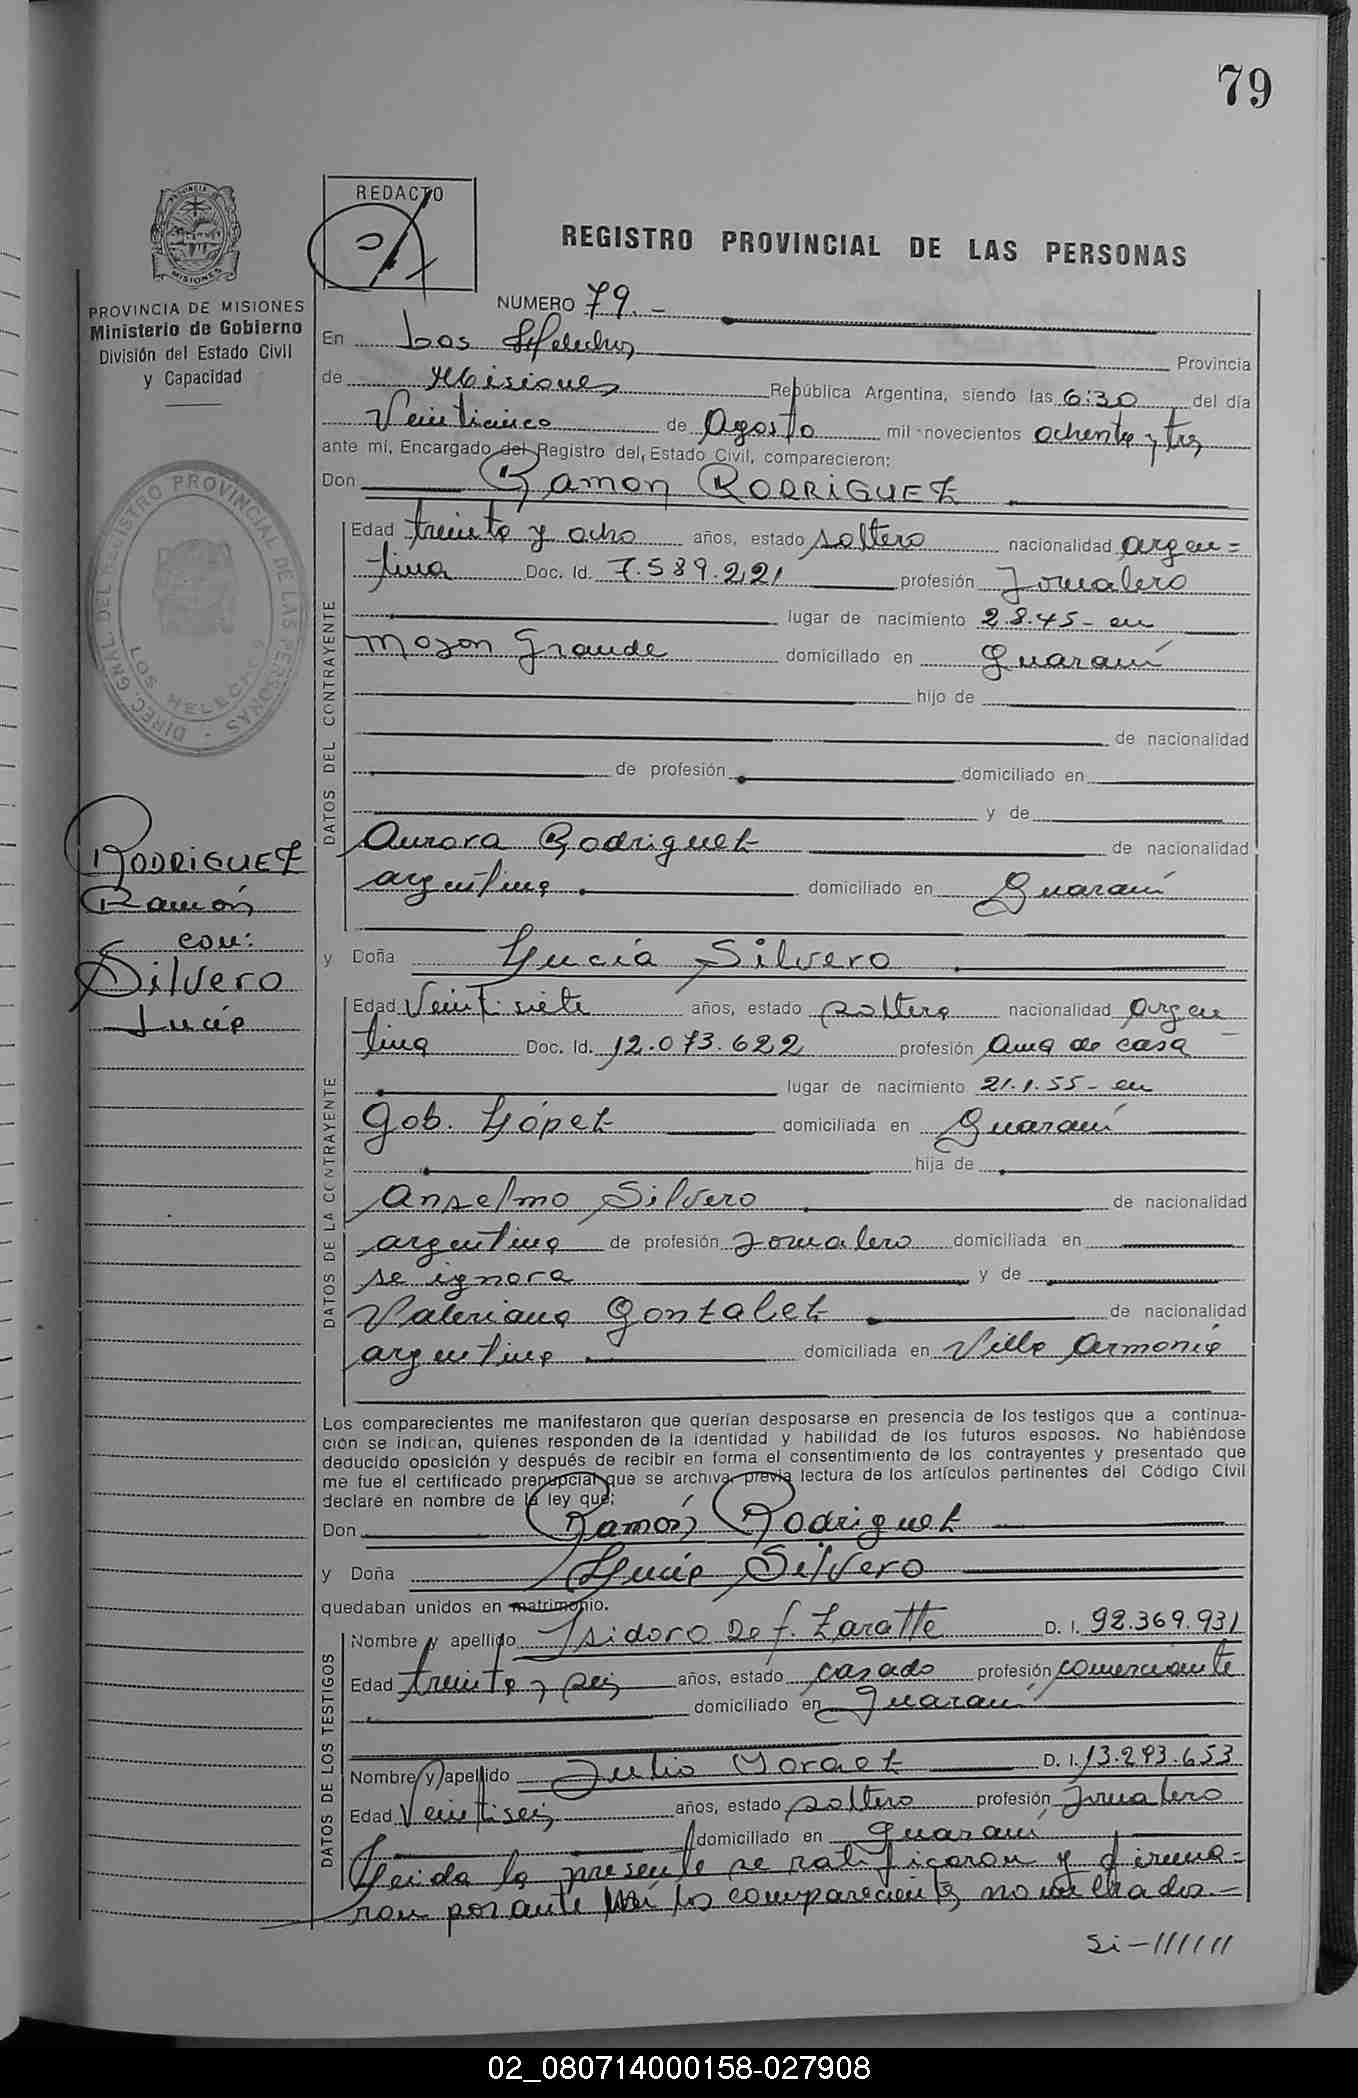 79
REDACTO
REGISTRO PROVINCIAL DE LAS PERSONAS
PROVINCIA DE MISIONES
MISIONES
PROVINCIA DE MISIONES
Ministerio de Gobierno
División del Estado Civil
y Capacidad
DIREC. GRAL. DEL REGISTRO PROVINCIAL DE LAS PERSONAS
LOS HELECHOS
RODRIGUEZ
Ramón
con:
Silvero
Lucía
NUMERO 79.-
En Los Helechos Provincia
de Misiones República Argentina, siendo las 6:30 del día
Veinticinco de Agosto mil novecientos ochenta y tres
ante mí, Encargado del Registro del Estado Civil, comparecieron:
Don Ramon RODRIGUEZ
DATOS DEL CONTRAYENTE
Edad treinta y ocho años, estado soltero nacionalidad argen=
tina Doc. Id. 7.589.221 profesión Jornalero
lugar de nacimiento 2.8.45- en
Mojon Grande domiciliado en Guaraní
hijo de
de nacionalidad
de profesión domiciliado en
y de
Aurora Rodriguez de nacionalidad
argentina domiciliado en Guaraní
y Doña Lucía Silvero
DATOS DE LA CONTRAYENTE
Edad Veintisiete años, estado soltera nacionalidad argen
tina Doc. Id. 12.073.622 profesión Ama de casa
lugar de nacimiento 21.1.55- en
Gob. López domiciliada en Guaraní
hija de
Anselmo Silvero de nacionalidad
argentina de profesión Jornalero domiciliada en
se ignora y de
Valeriana Gonzalez de nacionalidad
argentina domiciliada en Villa Armonía
Los comparecientes me manifestaron que querían desposarse en presencia de los testigos que a continua-
ción se indican, quienes responden de la identidad y habilidad de los futuros esposos. No habiéndose
deducido oposición y después de recibir en forma el consentimiento de los contrayentes y presentado que
me fue el certificado prenupcial que se archiva, previa lectura de los artículos pertinentes del Código Civil
declaré en nombre de la ley que:
Don Ramón Rodriguez
y Doña Lucía Silvero
quedaban unidos en matrimonio.
DATOS DE LOS TESTIGOS
Nombre y apellido Isidoro De f. Zaratte D. I. 92.369.931
Edad treinta y seis años, estado casado profesión comerciante
domiciliado en Guaraní
Nombre y apellido Julio D. I. 13.293.653
Edad Veintiseis años, estado soltero profesión Jornalero
domiciliado en Guaraní
Leida la presente se ratificaron y firma=
ron por ante mí los comparecientes nombrados.-
Si-//////
02_080714000158-027908